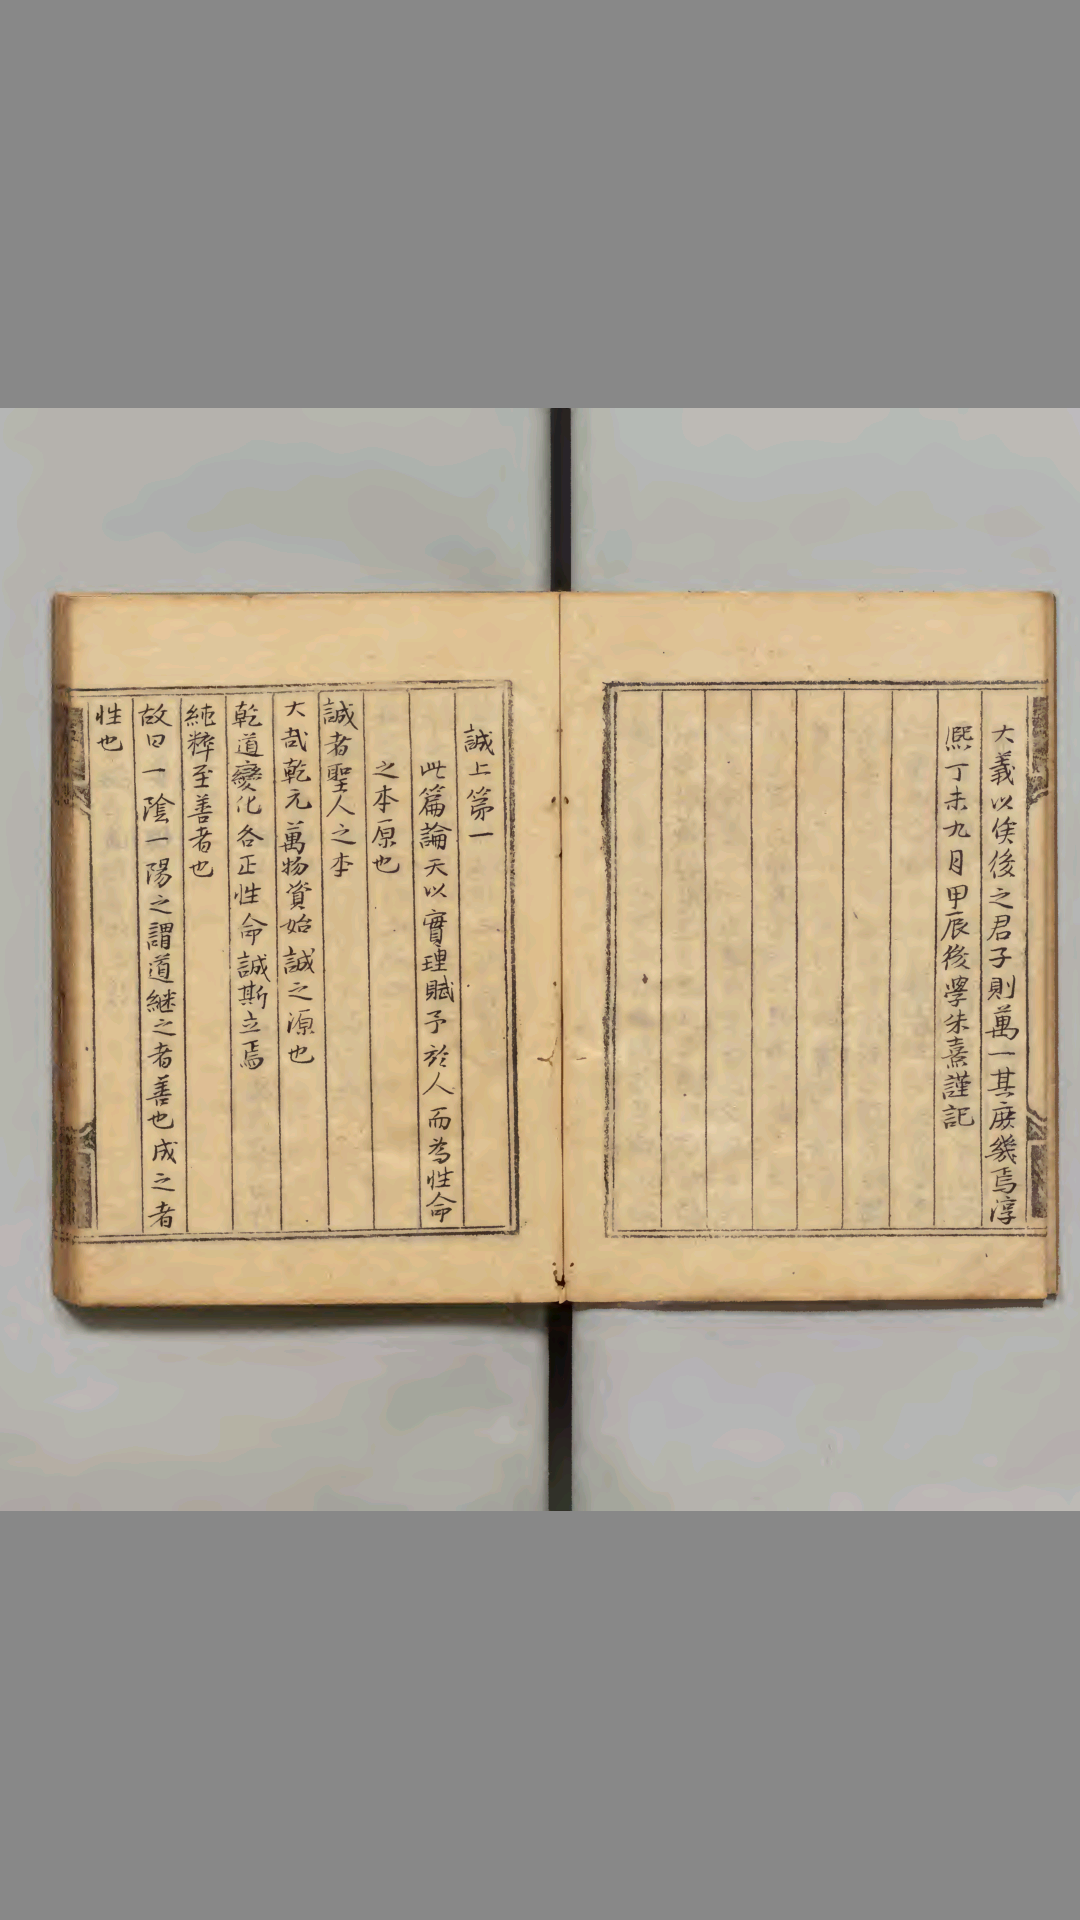 大義以俟後之君子則萬一其庶幾焉淳
熙丁未九月甲辰後學朱熹謹記
誠上第一
此篇論天以實理賦予於人而為性命
之本原也
誠者聖人之本
大哉乾元萬物資始誠之源也
乾道變化各正性命誠斯立焉
純粹至善者也
故曰一陰一陽之謂道継之者善也成之者
性也